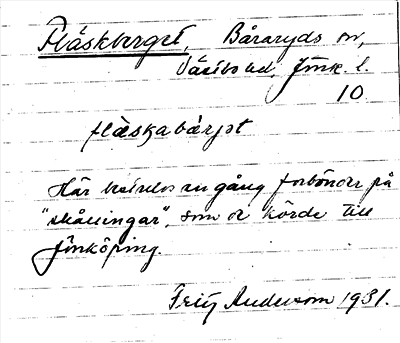 Fläskberget, Båraryds sn,
Västbo hd, Jönk. l.
10
flæskabærjet
Här betades en gång forbönder på
"skällingar", som de körde till
Jönköping.
Fritz Anderson 1931.